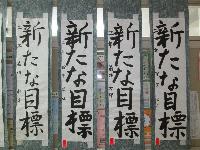 新たな目標
新たな目標
新たな目標
新たな目標